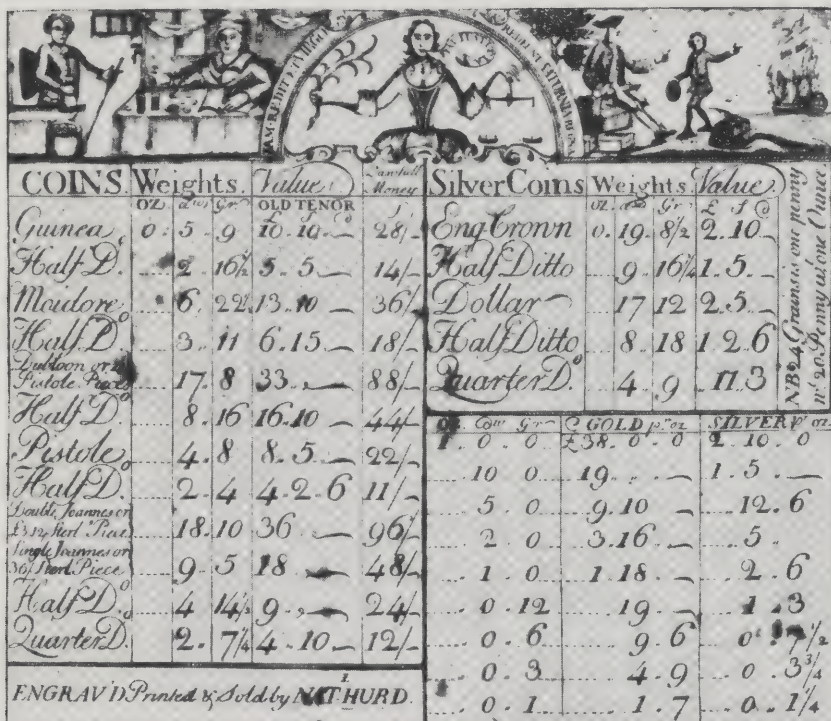 IAM REDIT ET VIRGO REDEUNT SATURNIA REGNA
COINS Weights Value Lawfull Money
OZ dwt Gr OLD TENOR
Guinea 0 5 9 10 10 28/
Half D.o 2 16½ 5 5 14/
Moidore 6 22½ 13 10 36/
Half D.o 3 11 6 15 18/
Dubloon or 4
Pistole Piece 17 8 33 88/
Half D.o 8 16 16 10 44/
Pistole 4 8 8 5 22/
Half D.o 2 4 4 2 6 11/
Double Joannes or
£3 12 Sterl. Piece 18 10 36 96/
Single Joannes or
36/ Sterl Piece 9 5 18 48/
Half D.o 4 14½ 9 24/
Quarter D. 2 7¼ 4 10 12/
ENGRAV'D Printed & Sold by NAT. HURD.
Silver Coins Weights Value
oz dwt Gr £ S D
Eng Crown 0 19 8½ 2 10
Half Ditto 9 16¼ 1 5
Dollar 17 12 2 5
Half Ditto 8 18 1 2 6
Quarter D.o 4 9 11 3
NB 24 Grains is one penny
wt 20 Penny wt one Ounce
OZ Dw Gr GOLD pr oz SILVER pr oz
1 0 0 £38 0 0 2 10 0
10 0 19 1 5
5 0 9 10 12 6
2 0 3 16 5
1 0 1 18 2 6
0 12 19 1 3
0 6 9 6 0 7½
0 3 4 9 0 3¾
0 1 1 7 0 1¼